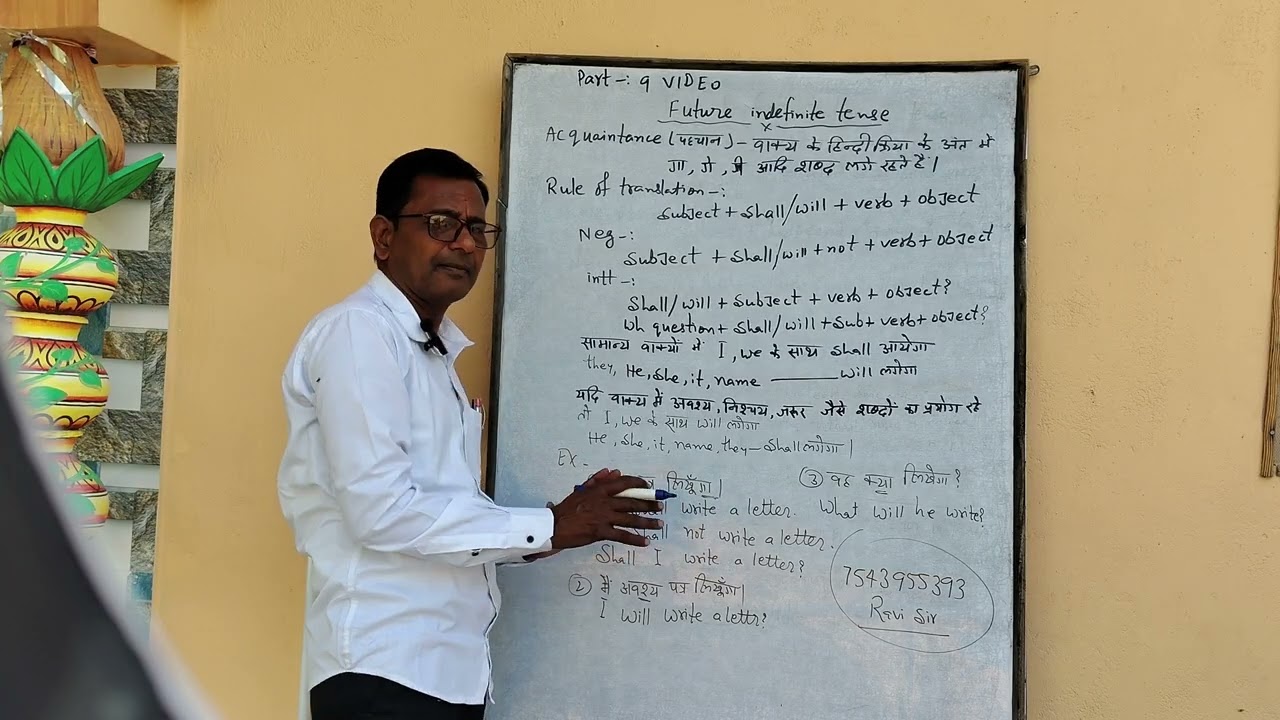 Part-: 9 VIDEO
Future indefinite tense
Acquaintance (पहचान) - वाक्य के हिन्दी क्रिया के अंत में
गा, गे, गी आदि शब्द लगे रहते हैं।
Rule of translation-:
Subject + Shall/will + verb + object
Neg-:
Subject + Shall/will + not + verb + object
intt-:
Shall/will + Subject + verb + object?
Wh question + Shall/will + Sub + verb + object?
सामान्य वाक्यों में I, we के साथ Shall आयेगा
they, He, She, it, name ——— will लगेगा
यदि वाक्य में अवश्य, निश्चय, जरूर जैसे शब्दों का प्रयोग रहे
तो I, we के साथ will लगेगा
He, She, it, name, they - Shall लगेगा।
EX-
लिखूँगा।
write a letter.
Shall not write a letter.
Shall I write a letter?
② मैं अवश्य पत्र लिखूँगा।
I will write a lettr?
③ वह क्या लिखेगा?
What will he write?
7543955393
Ravi Sir